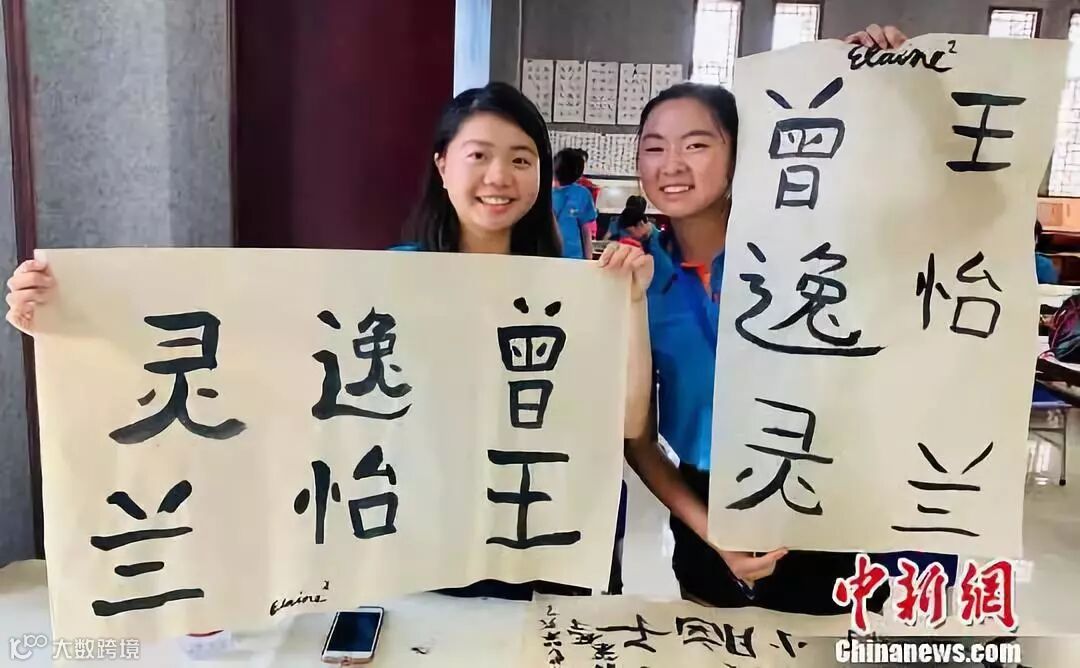 曾逸灵
王怡兰
Elaine²
Elaine²
王怡兰
曾逸灵
中新网
Chinanews.com
大数跨境